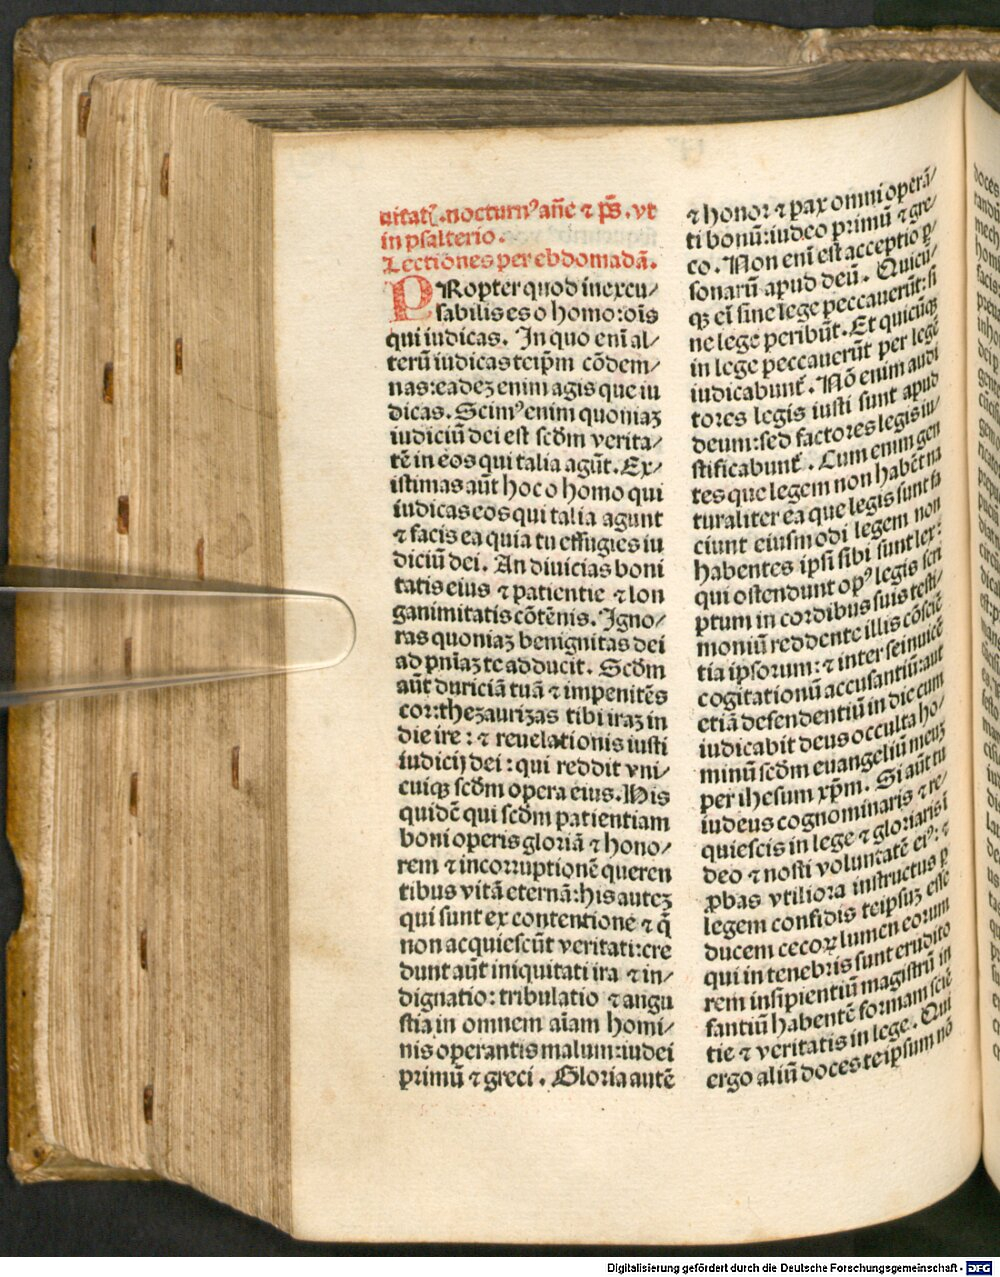 uitatꝭ.nocturnꝰ añe ⁊ p̃s.vt
in psalterio.
Lectiones per ebdomadā.
PRopter quod inexcu/
sabilis es o homo:oīs
qui iudicas. In quo enī al/
terū iudicas teip̄m cōdem/
nas:eadeꝫ enim agis que iu
dicas. Scimꝰ enim quoniaꝫ
iudiciū dei est scḋm verita/
tē in eos qui talia agūt. Ex/
istimas aūt hoc o homo qui
iudicas eos qui talia agunt
⁊ facis ea quia tu effugies iu
diciū dei. An diuicias boni
tatis eius ⁊ patientie ⁊ lon
ganimitatis cōtēnis. Igno/
ras quoniaꝫ benignitas dei
ad pn̄iaꝫ te adducit. Scḋm
aūt duriciā tuā ⁊ impenitēs
cor:thezaurizas tibi iraꝫ in
die ire: ⁊ reuelationis iusti
iudicij dei: qui reddit vni/
cuiqꝫ scḋm opera eius. His
quidē qui scḋm patientiam
boni operis gloriā ⁊ hono/
rem ⁊ incorruptionē queren
tibus vitā eternā:his auteꝫ
qui sunt ex contentione ⁊ q̄
non acquiescūt veritati:cre
dunt aūt iniquitati ira ⁊ in/
dignatio: tribulatio ⁊ angu
stia in omnem aīam homi/
nis operantis malum:iudei
primū ⁊ greci. Gloria autē
⁊ honor ⁊ pax omni operā/
ti bonū:iudeo primū ⁊ gre/
co. Non enī est acceptio ꝑ/
sonarū apud deū. Quicū/
qꝫ eī sine lege peccauerūt:si
ne lege peribūt. Et quicūqꝫ
in lege peccauerūt per legē
iudicabunt̉. Nō enim audi
tores legis iusti sunt apud
deum:sed factores legis iu/
stificabunt̉. Cum enim gen
tes que legem non habēt na
turaliter ea que legis sunt fa
ciunt eiusmodi legem non
habentes ipsi sibi sunt lex:
qui ostendunt opꝰ legis scri
ptum in cordibus suis testi/
moniū reddente illis cōsciē
tia ipsorum: ⁊ inter se inuicē
cogitationū accusantiū:aut
etiā defendentiū in die cum
iudicabit deus occulta ho/
minū scḋm euangeliū meuꝫ
per ihesum xp̄m. Si aūt tu
iudeus cognominaris ⁊ re/
quiescis in lege ⁊ gloriaris ī
deo ⁊ nosti voluntatē eiꝰ: ⁊
ꝓbas vtiliora instructus ꝑ
legem confidis teipsuꝫ esse
ducem cecoꝝ lumen eorum
qui in tenebris sunt erudito
rem insipientiū magistrū in
fantiū habentē formam sciē
tie ⁊ veritatis in lege. Qui
ergo aliū doces teipsum nō
Digitalisierung gefördert durch die Deutsche Forschungsgemeinschaft - DFG